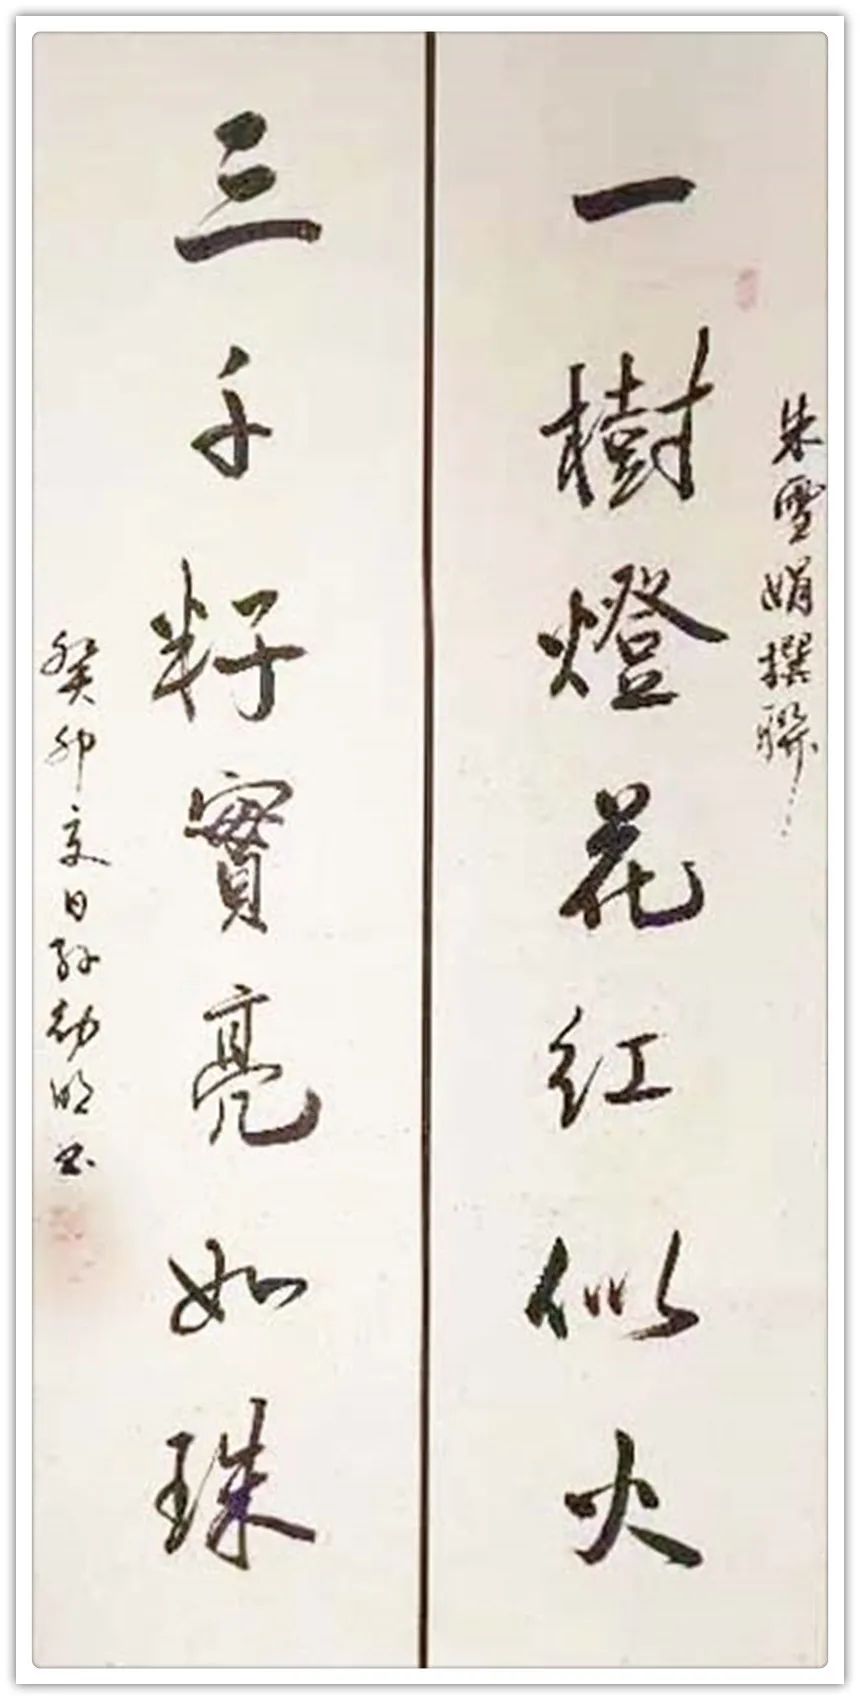 朱雪娟撰聯
一樹燈花红似火
三千籽實亮如珠
癸卯夏日孙幼明书